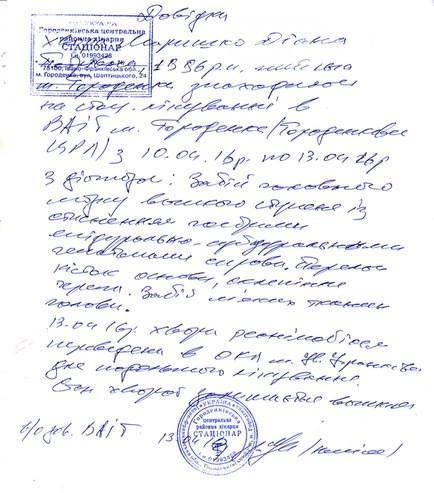 Довідка
УКРАЇНА
Городенківська центральна
районна лікарня
СТАЦІОНАР
і.к. 01993426
78100, Івано-Франківська обл.,
м. Городенка, вул. Шептицького, 24
Діана
1996 р.н. жителька
м. Городенки знаходилася
на стац. лікуванні в
ВАІТ м. Городенка /Городенківська
ЦРЛ/ з 10.04.16р. по 13.04.16р
З діагнозом: Забій головного
мозку важкого ступеня із
стисненням гострими
епідурально-субдуральними
гематомами справа. Перелом
кісток основи, склепіння
черепа. Забій м'яких тканин
голови.
13.04.16р. хвора реанімобілем
переведена в ОКЛ м. Ів. Франківськ
для подальшого лікування.
Стан хворої залишався важким
В/о зав. ВАІТ 13.04.16
УКРАЇНА
Городенківська
центральна
районна лікарня
СТАЦІОНАР
і.к. 01993426